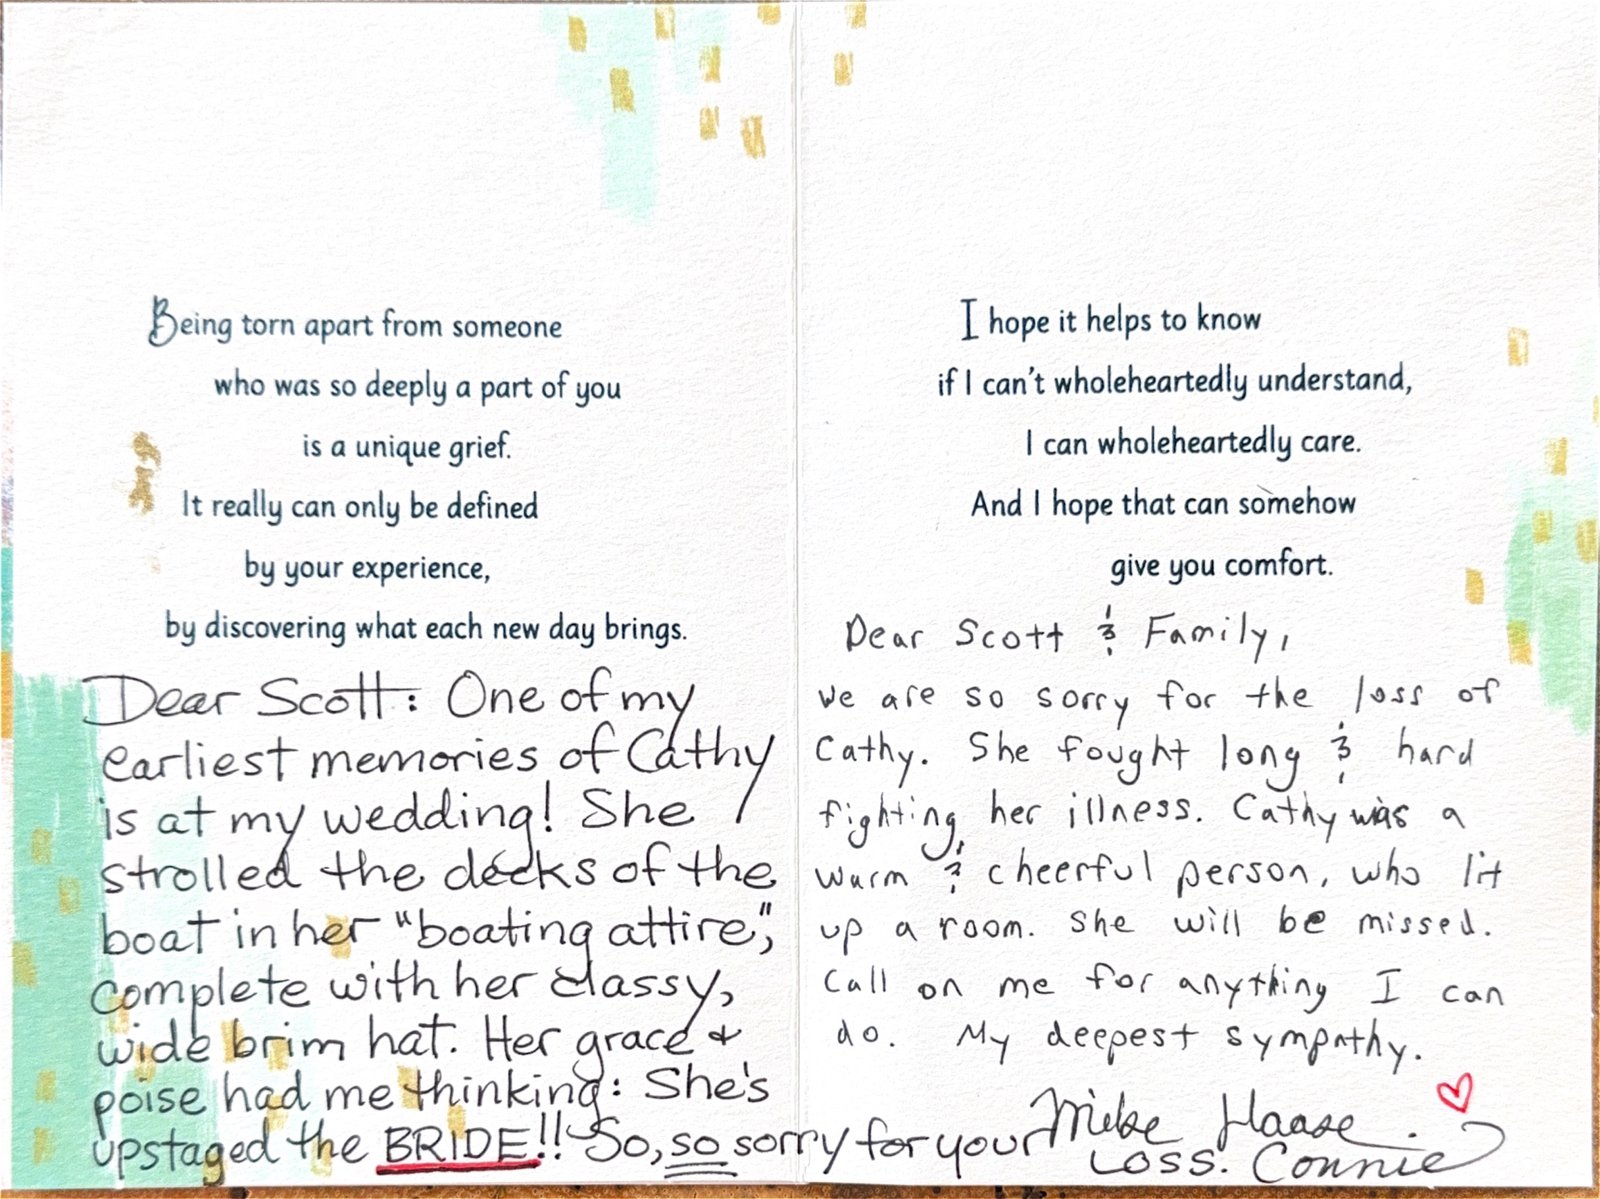 Being torn apart from someone
who was so deeply a part of you
is a unique grief.
It really can only be defined
by your experience,
by discovering what each new day brings.
Dear Scott: One of my
earliest memories of Cathy
is at my wedding! She
strolled the decks of the
boat in her "boating attire",
complete with her classy,
wide brim hat. Her grace &
poise had me thinking: She's
upstaged the BRIDE!! So, so sorry for your
Loss. Connie
I hope it helps to know
if I can't wholeheartedly understand,
I can wholeheartedly care.
And I hope that can somehow
give you comfort.
Dear Scott & Family,
We are so sorry for the loss of
Cathy. She fought long & hard
fighting, her illness. Cathy was a
warm & cheerful person, who lit
up a room. She will be missed.
Call on me for anything I can
do. My deepest sympathy.
Mike Haase